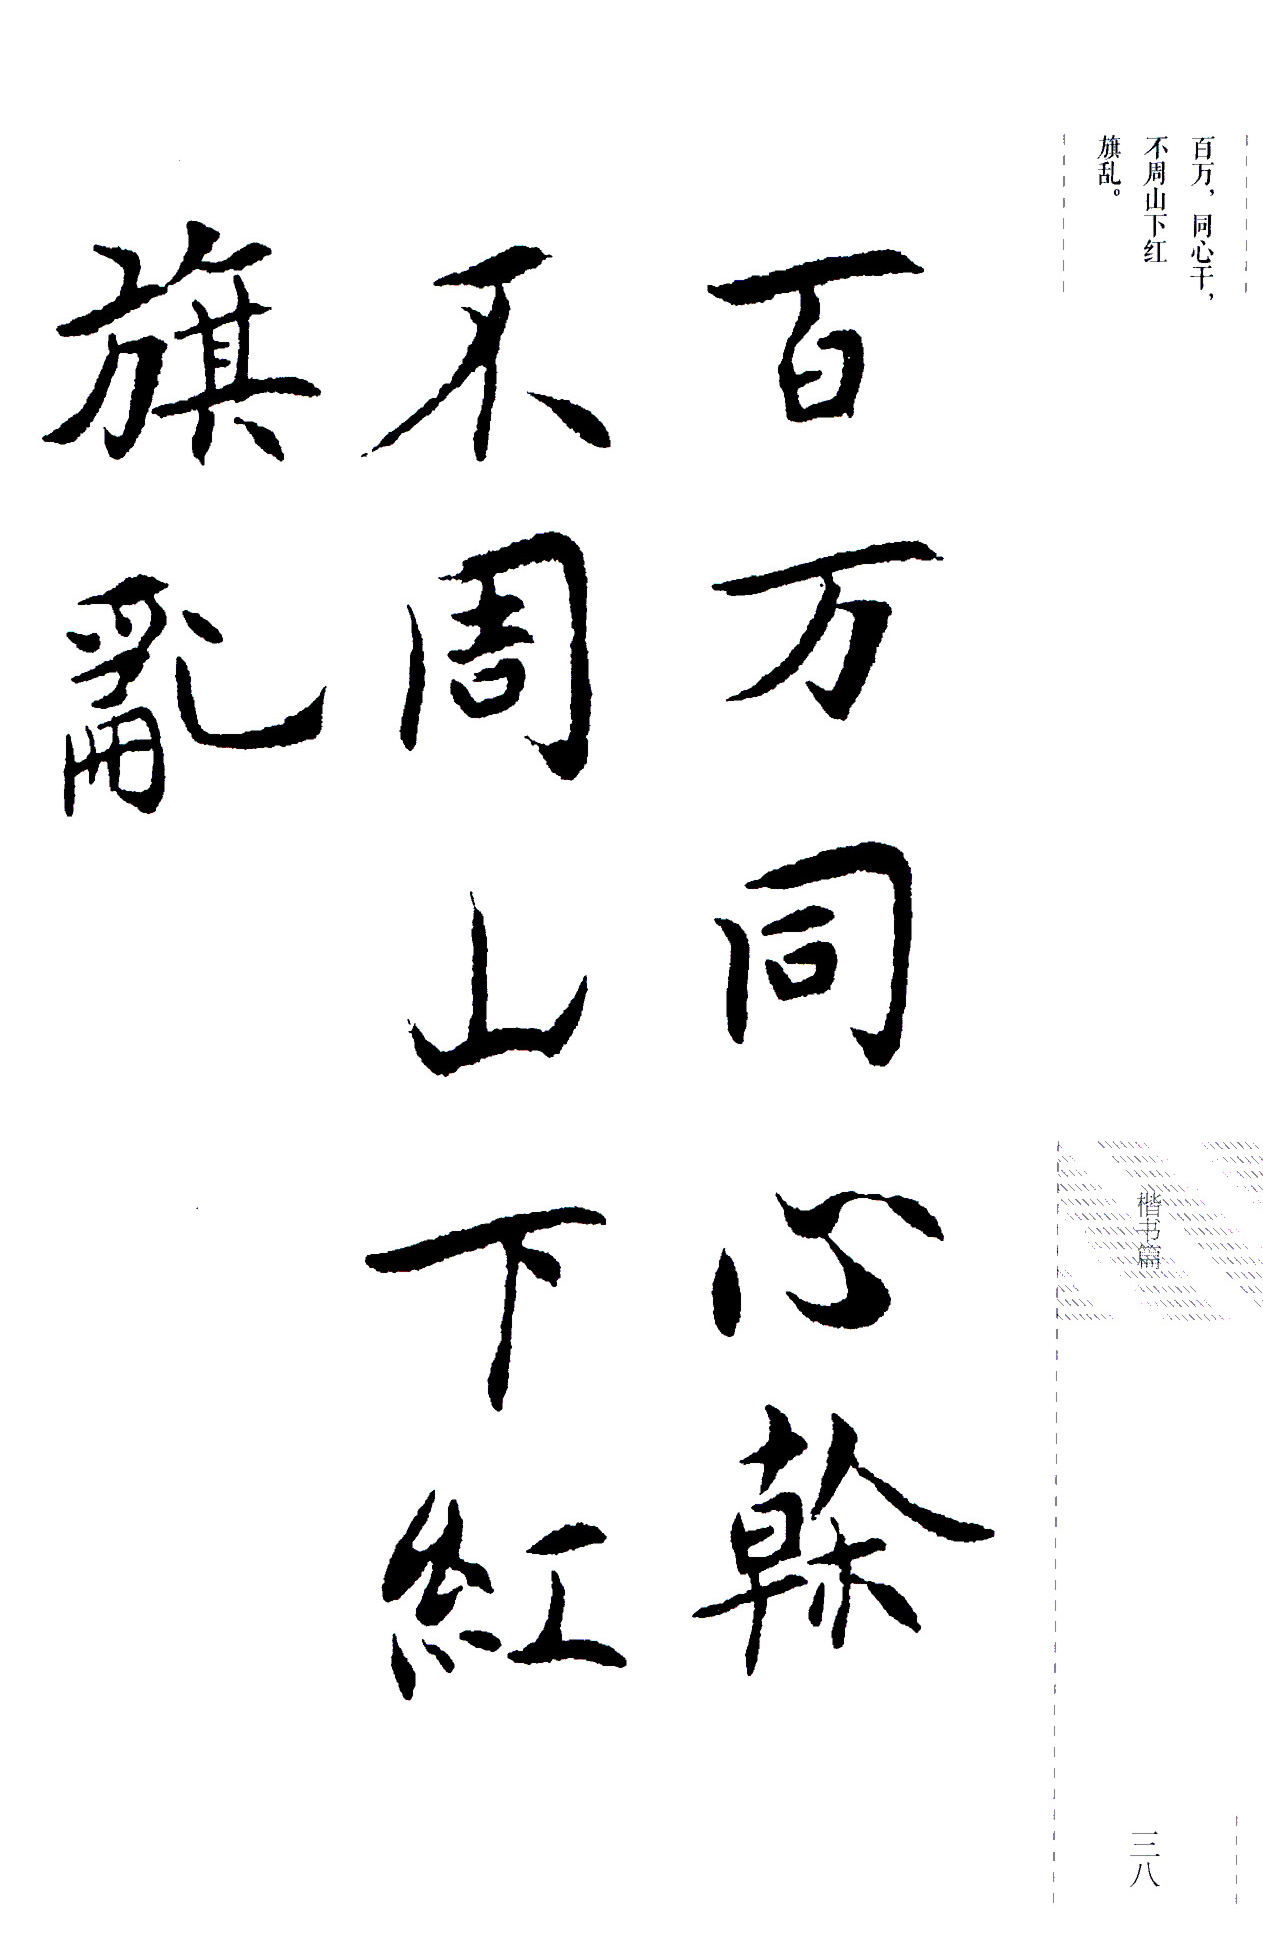 百万，同心干，
不周山下红
旗乱。
百万同心幹
不周山下紅
旗亂
楷书篇
三八